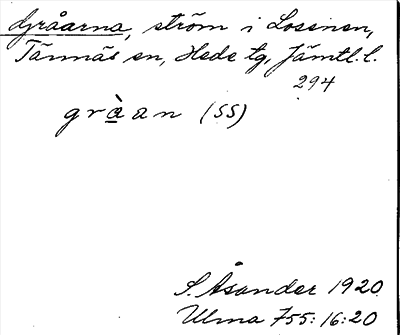 Gråarna, ström i Lossnen,
Tännäs sn, Hede tg, Jämtl. l.
294
gràan (SS)
S. Åsander 1920
Ulma 755:16:20